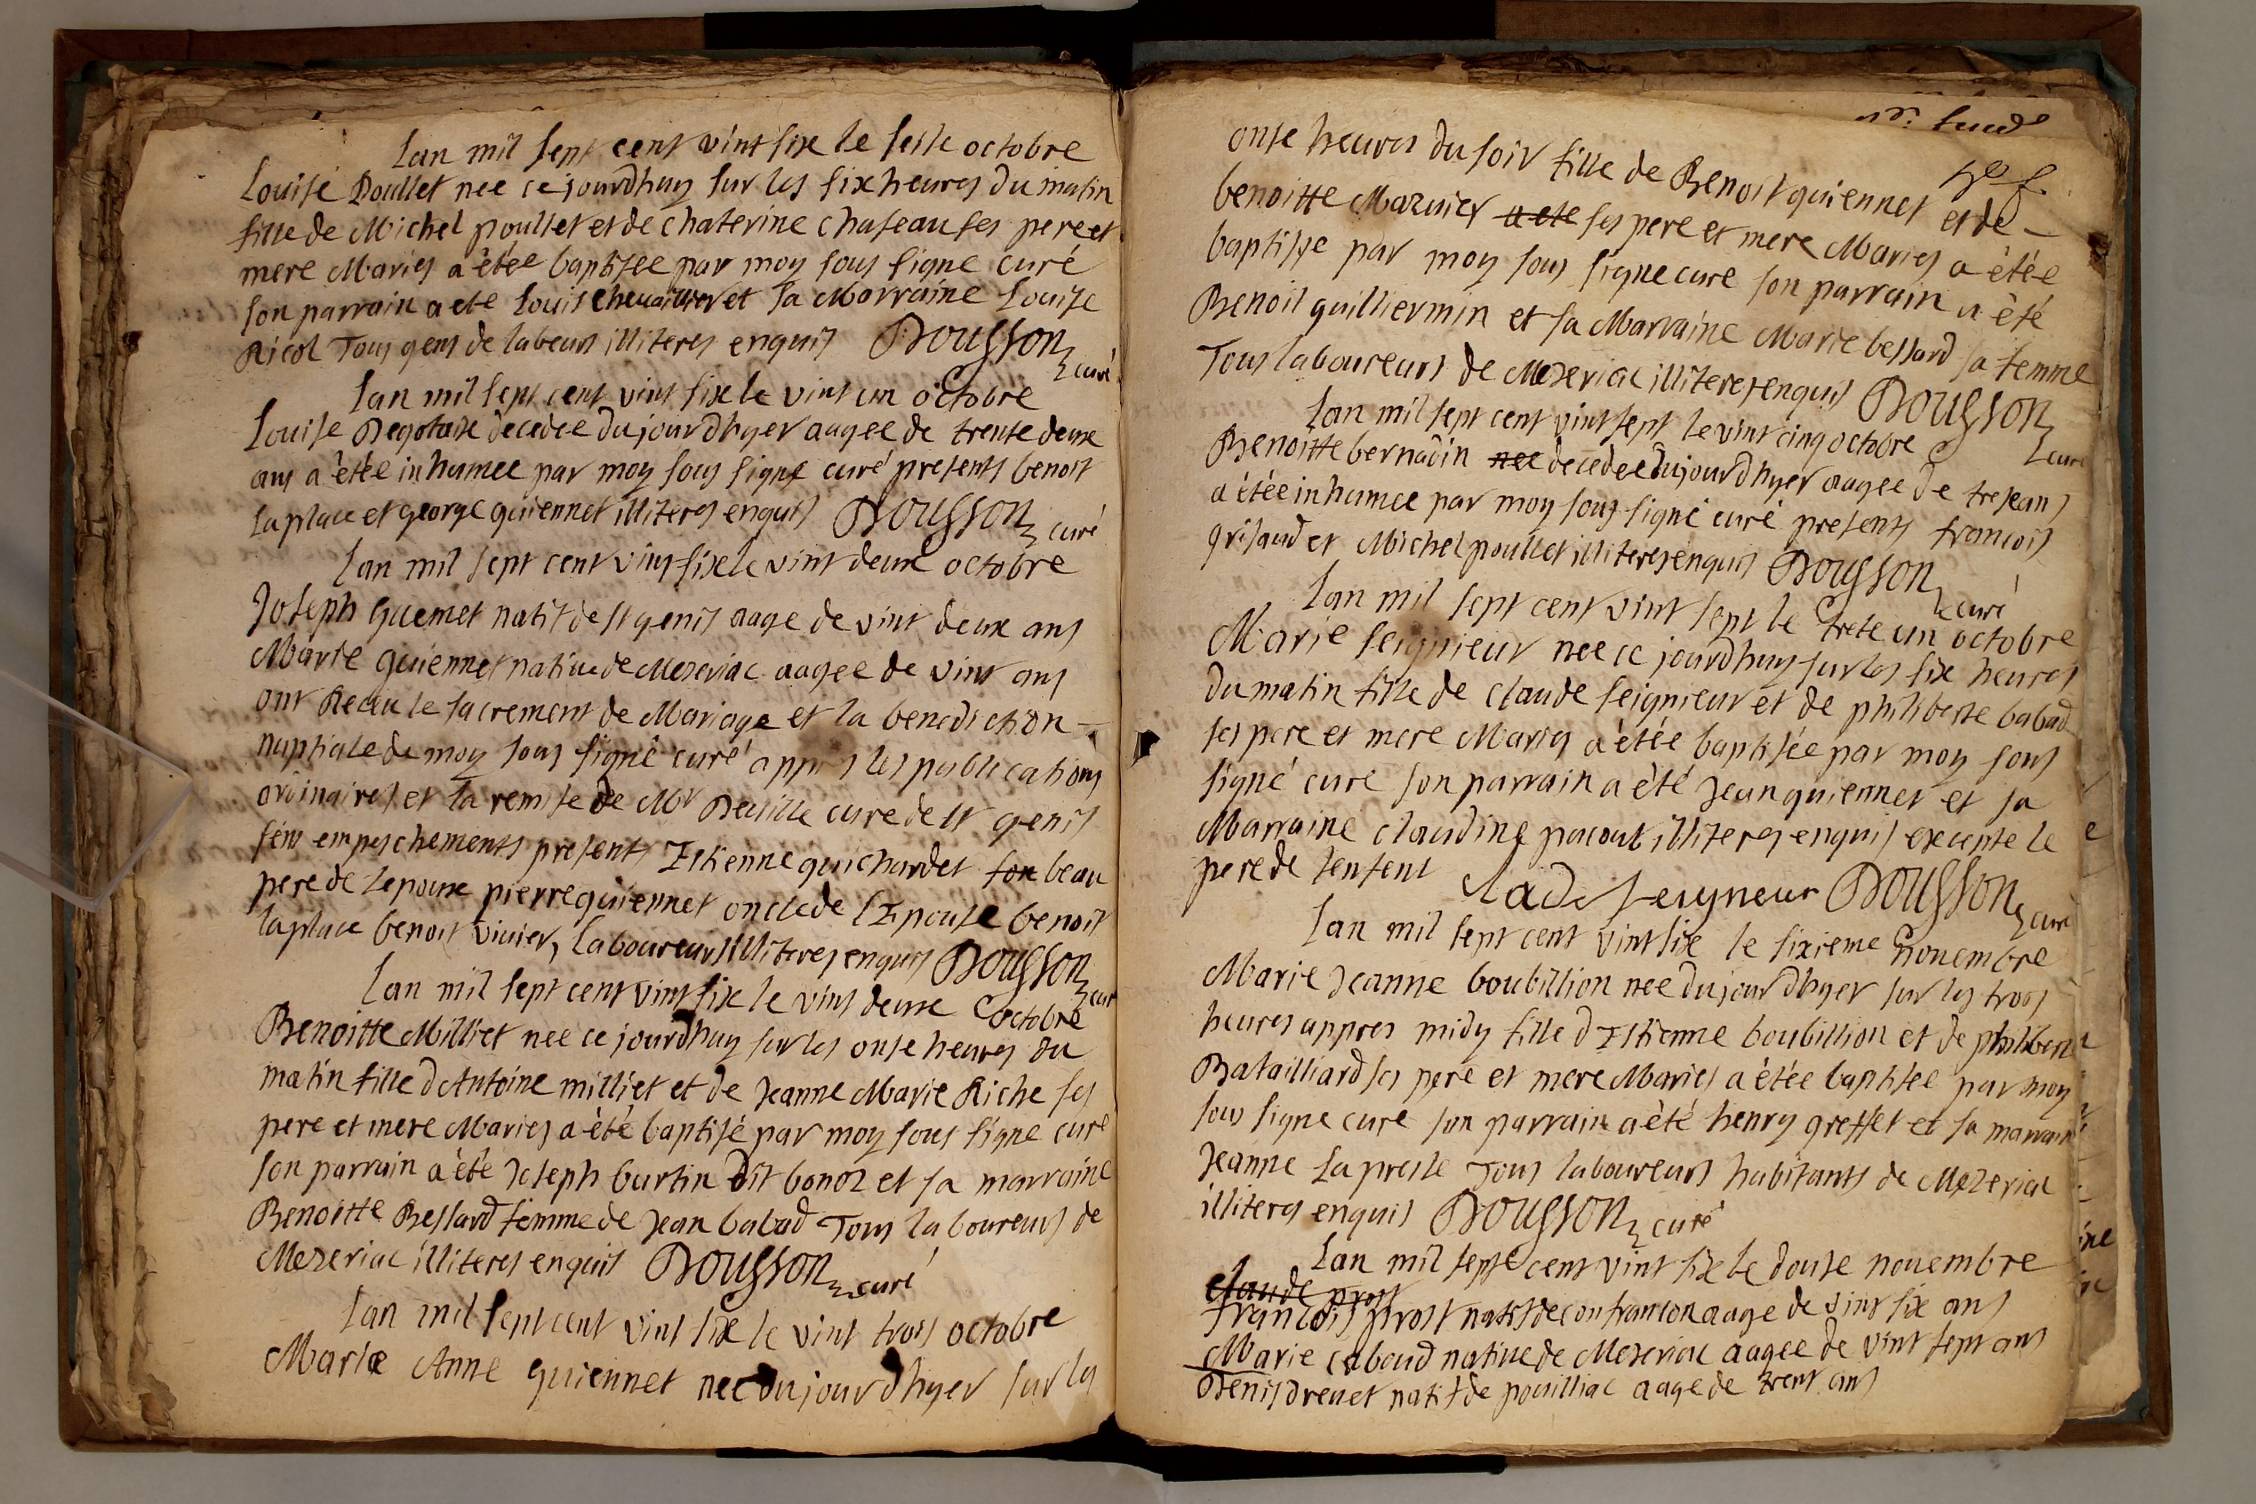 Lan mil sept cent vint six le sesse octobre
Louise Poullet nee ce jourdhuy sur les six heures du matin
fille de Michel poullet et de chaterine chateau ses pere et
mere Maries a êtée baptisee par moy sous signe curé
son parrain a ete Louis chevallier et sa Marraine Louise
Ricol Tous gens de labeurs illiteres enquis Dousson curé
Lan mil sept cent vint six le vint un octobre
Louise decedee dujourdhyer aagee de trente deux
ans a êtée inhumee par moy sous signe curé presents benoit
Laplace et george quiennet illiteres enquis Dousson curé
Lan mil sept cent vint six le vint deux octobre
Joseph Guemet natif de st genis aage de vint deux ans
Marie quiennet native de Mezeriac aagee de vint ans
ont Receu le sacrement de Mariage et la benediction
nuptiale de moy sous signé curé appres les publications
ordinaires et la remise de Mr Deville cure de st genis
sens empeschements presents Estienne guichardet son beau
pere de lepoux pierre quiennet oncle de lEpouse benoit
laplace benoit vivier, laboureurs illiteres enquis Dousson curé
Lan mil sept cent vint six le vint deux octobre
Benoitte Milliet nee ce jourdhuy sur les onse heures du
matin fille dAntoine milliet et de Jeanne Marie Riche ses
pere et mere Maries a été baptisé par moy sous signe curé
son parrain a été Joseph burtin dit bonoz et sa marraine
Benoitte Bessard femme de Jean babad Tous laboureurs de
Mezeriac illiteres enquis Dousson curé
Lan mil sept cent vint six le vint trois octobre
Marie Anne quiennet nee dujourdhyer sur les
onse heures du soir fille de Benoit quiennet et de
benoitte Mazuier a ete ses pere et mere Maries a êtée
baptisse par moy sous signe cure son parrain a été
Benoit guilliermin et sa Marraine Marie bessard sa femme
Tous laboureurs de Mezeriac illiteres enquis Dousson curé
Lan mil sept cent vint sept le vint cinq octobre
Benoitte bernadin nee decedee dujourdhyer aagee de trese ans
a êtée inhumee par moy sous signé curé presents francois
grisaud et Michel poullet illiteres enquis Dousson curé
Lan mil sept cent vint sept le trete un octobre
Marie seignieur nee ce jourdhuy sur les six heures
du matin fille de claude seignieur et de philiberte babad
ses pere et mere Maries a êtée baptisée par moy sous
signé cure son parrain a été Jean quiennet et sa
Marraine claudine pacout illiteres enquis excepte le
pere de lenfent Clade seigneur Dousson curé
Lan mil sept cent vint six le sixieme novembre
Marie Jeanne boubillion nee dujourdhyer sur les trois
heures appres midy fille dEstienne boubillion et de philiberte
Batailliard ses pere et mere Maries a êtée baptisee par moy
sous signe cure son parrain a été henry greffet et sa marraine
Jeanne Lapreste Tous laboureurs habitants de Mezeriac
illiteres enquis Dousson curé
Lan mil sept cent vint six le douse novembre
claude prost
francois prost natif de confrancon aage de vint six ans
Marie caboud native de Mezeriac aagee de vint sept ans
Denis drevet natif de pouilliac aage de trent ans